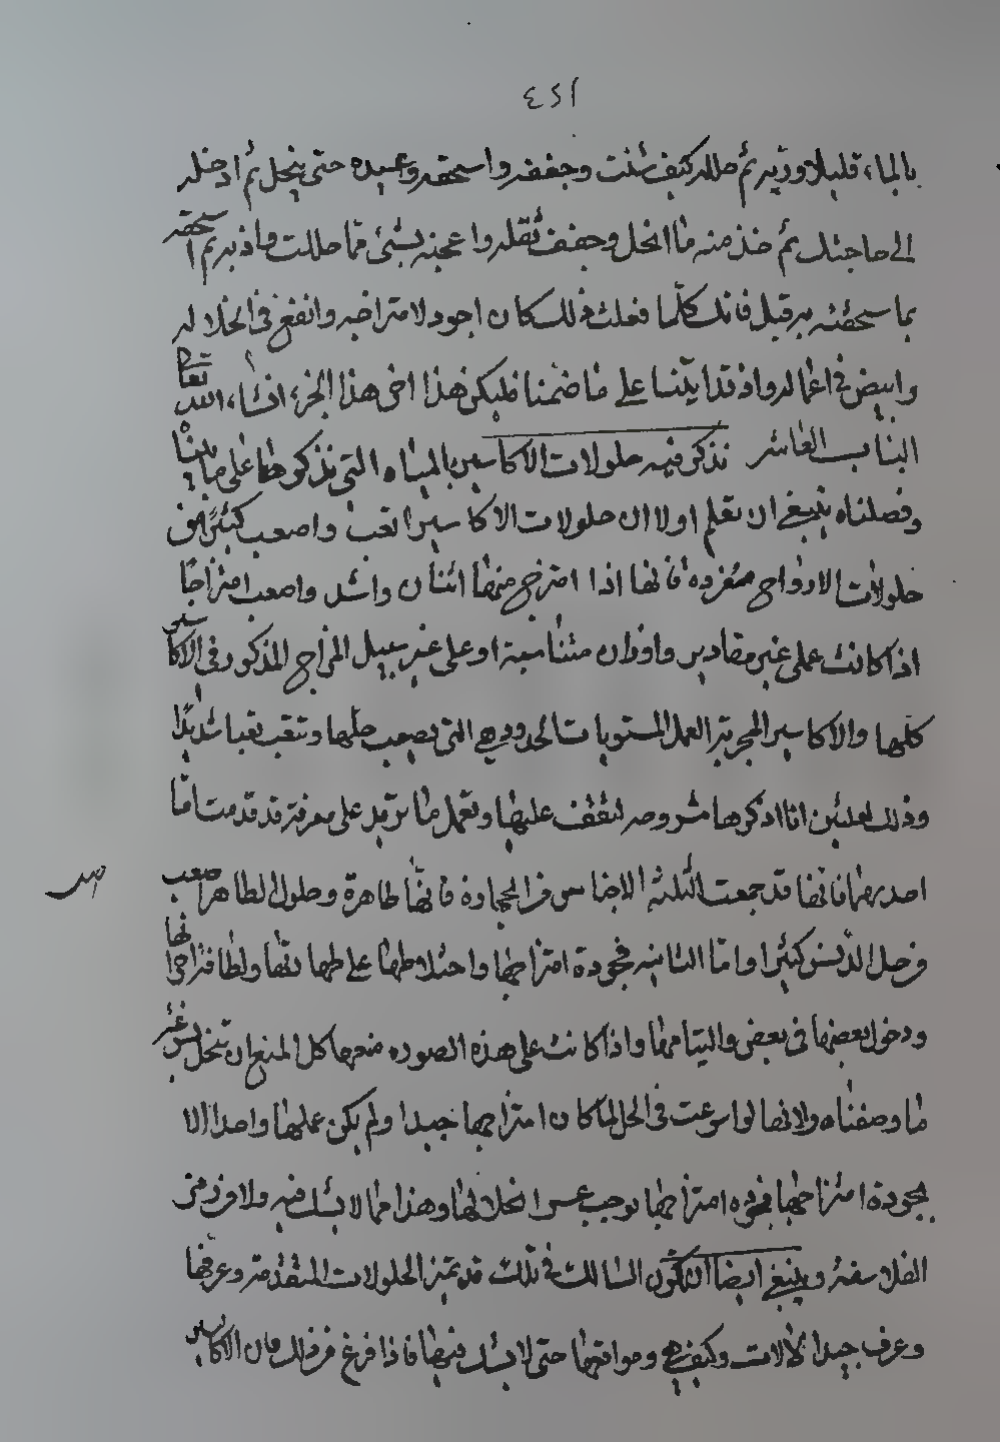 ٤٢١
بالماء قليلا وذيبه ثم حلله كيف شئت وجففه واسحقه وعيده حتى ينحل ثم ادخله
الى حاجتك ثم خذ منه ما انحل وجفف ثقله واعجنه بشئ مما حللت واذبه ثم اسحقه
بما سحقته به قبل فانك كلما فعلت ذلك كان اجود لامتزاجه وانفع في انحلاله
وابيض في اعماله واذ قد اتينا على ما ضمنا فليكن هذا اخر هذا الجزء انشاء الله تعالى
الباب العاشر نذكر فيه حلولات الاكاسير بالمياه التي نذكرها على ما بينا
وفصلناه ينبغي ان تعلم اولا ان حلولات الاكاسير اتعب واصعب كثيرا من
حلولات الارواح مفردة فانها اذا امتزج منها اثنان واشد واصعب امتزاجا
اذا كانت على غير مقادير واوزان متناسبة او على غير سبيل المزاج المذكور في الاكاسير
كلها والاكاسير المجربة العمل المستويات الحدود هي التي يصعب حلها وتتعب تعبا شديدا
وذلك لعلتين انا اذكرها مشروحه لتقف عليها وتعمل ما تريد على معرفة قد قدمت اما
احديهما فانها قد جمعت الثلثة الاجناس من الحجارة فانها طاهرة وحلول الطاهر اصعب
من حل الدنس كثيرا واما الثانيه فجودة امتزاجها واختلاطها على طهارتها ولطافة اجزائها
ودخول بعضها في بعض والتيامها واذا كانت على هذه الصوره منعها كل المنع ان تنحل بسرعة
ما وصفناه ولانها لو اسرعت في الحل لما كان امتزاجها جيدا ولم يكن عملها واحدا الا
بجودة امتزاجها فجوده امتزاجها توجب عسر انحلالها وهذا مما لا يشك فيه ولا فرد من
الفلاسفة وينبغي ايضا ان يكون السالك في تلك قد تميز الحلولات المتقدمة وعرفها
وعرف جيدا الالات وكيف هي ومواقعها حتى لا يشك فيها فاذا فرغ من ذلك فان الاكاسير